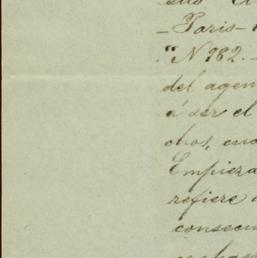 -Paris-
"N 982.-
del agen
á ser el
chos, cua
Empieza
refiere
consecu